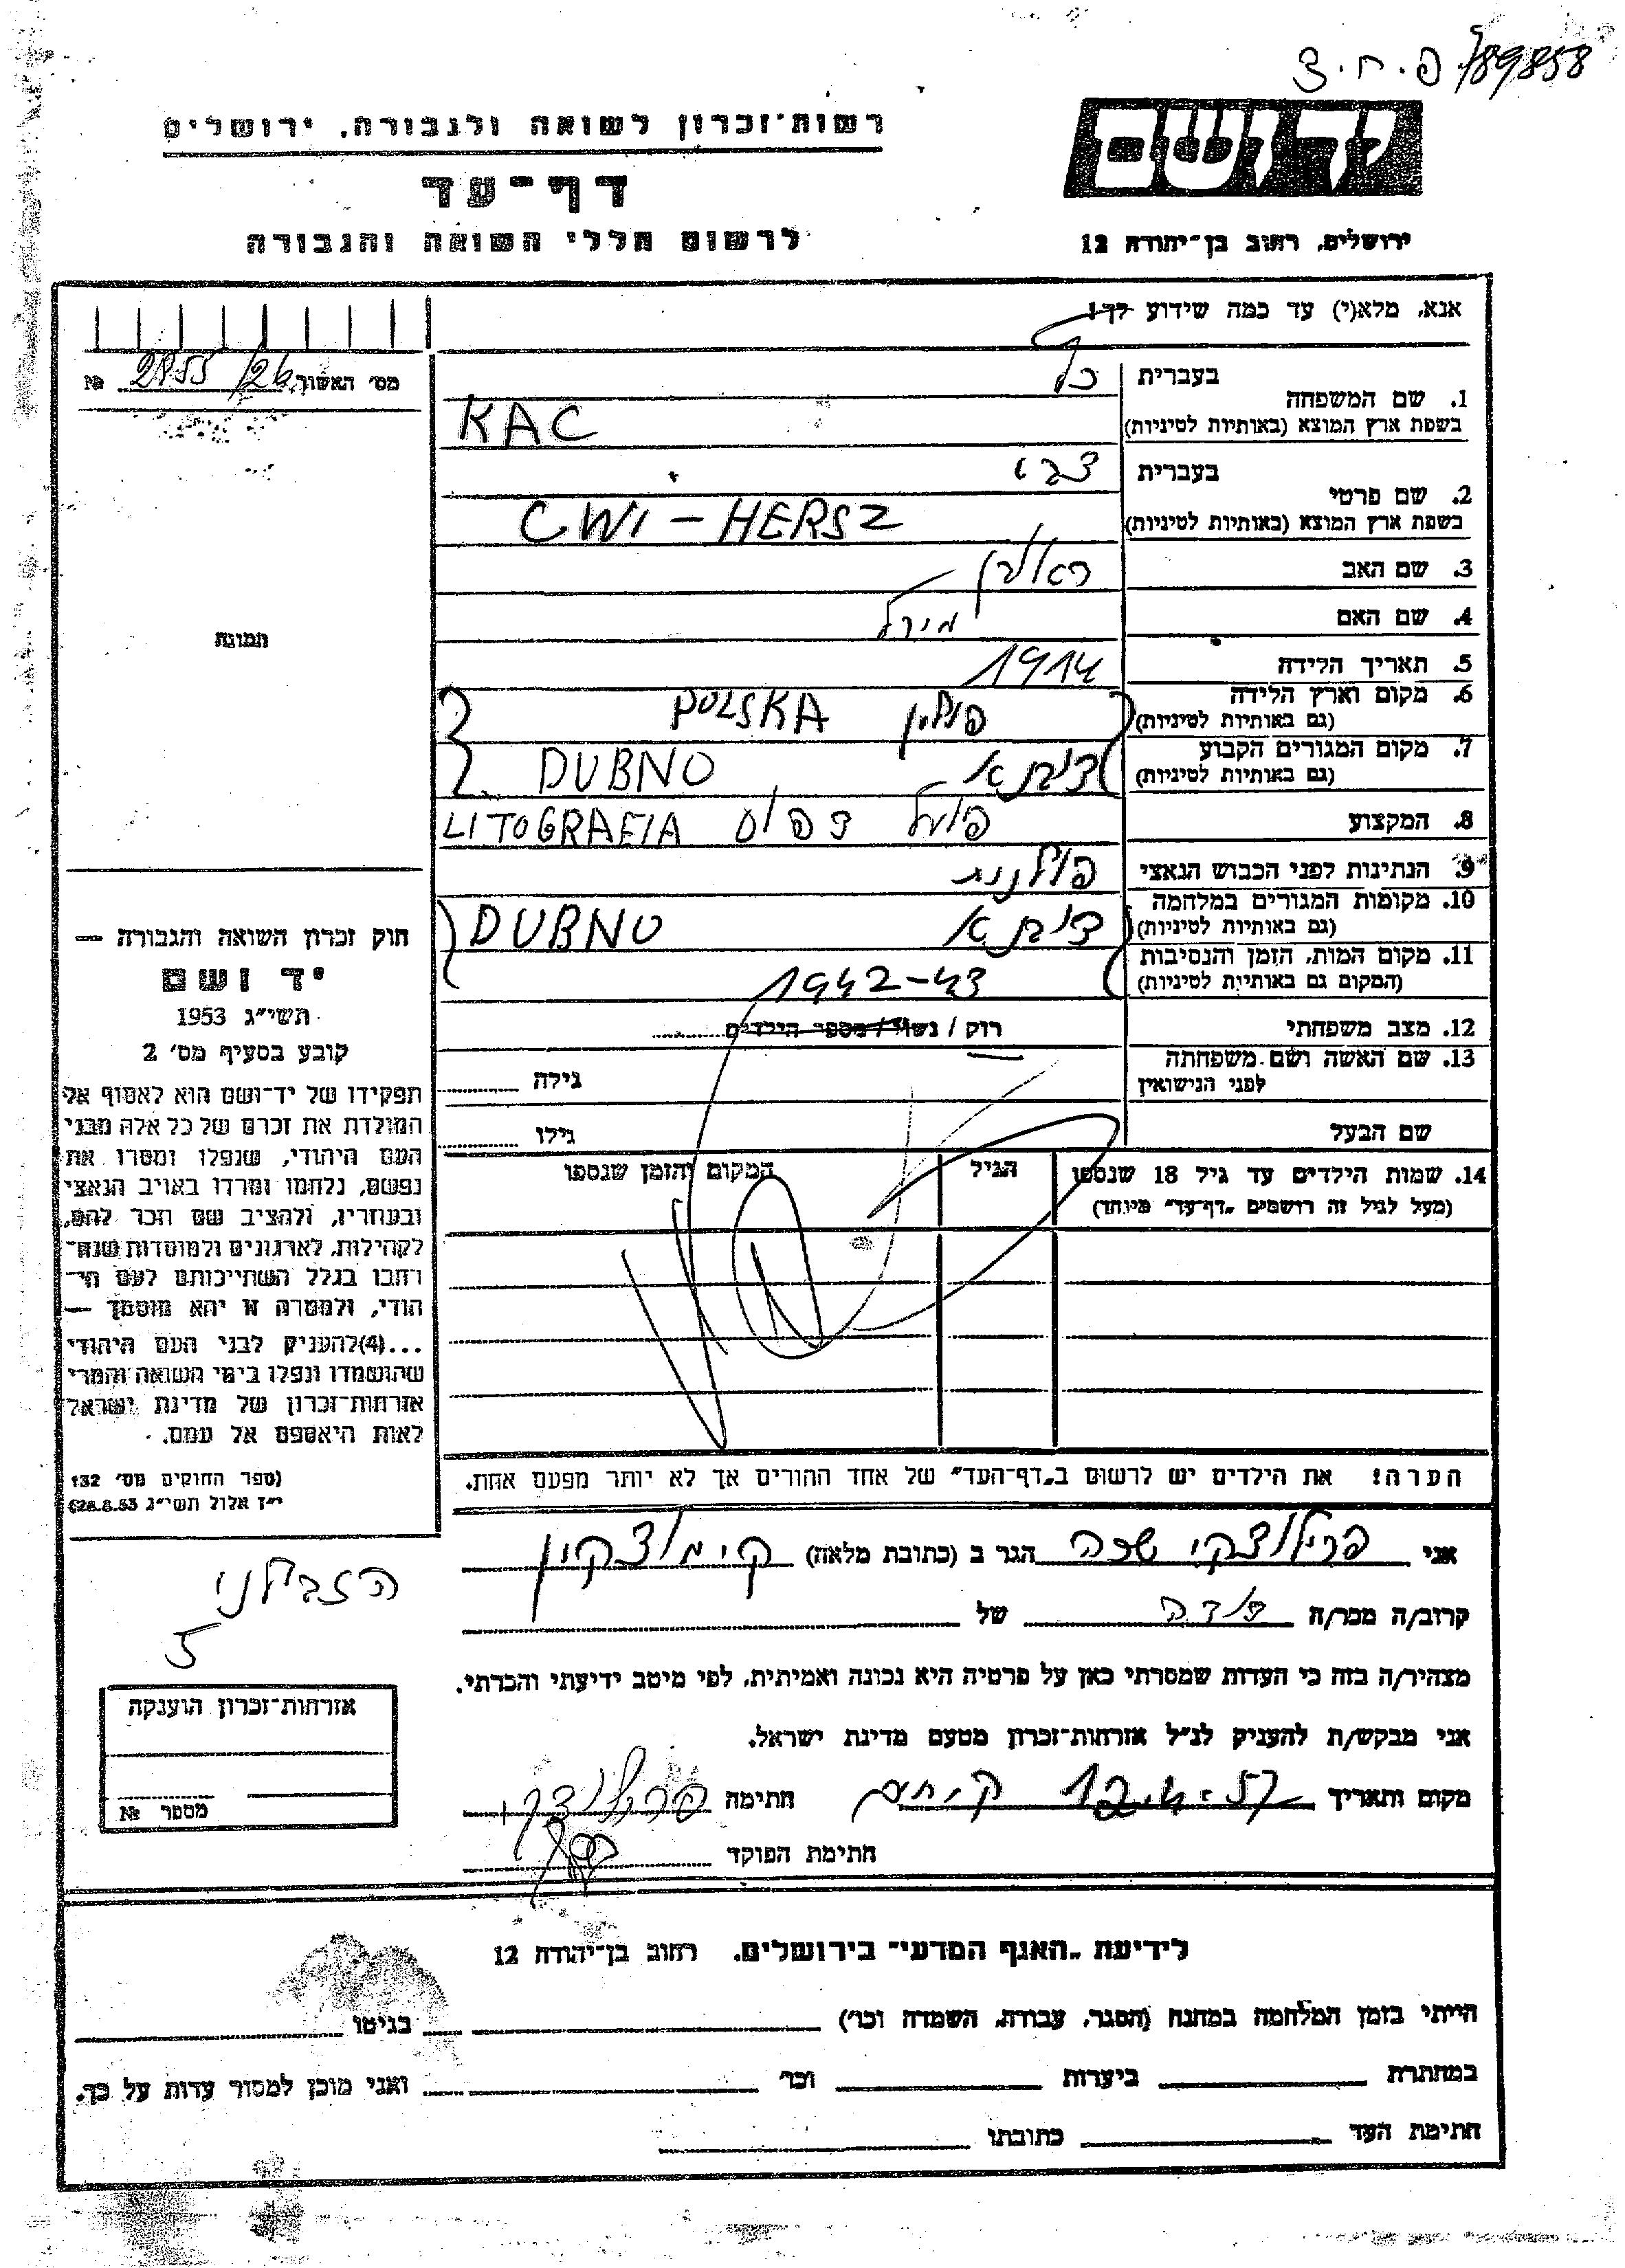 פ.ח.צ /89858
יד ושם
ירושלים, רחוב בן־יהודה 12
רשות־זכרון לשואה ולגבורה, ירושלים
דף־עד
לרשום חללי השואה והגבורה
אנא, מלא(י) עד כמה שידוע לך!
מס׳ האשור 2855/26 №
תמונה
1. שם המשפחה
בעברית כץ
בשפת ארץ המוצא (באותיות לטיניות) KAC
2. שם פרטי
בעברית צבי
בשפת ארץ המוצא (באותיות לטיניות) CWI - HERSZ
3. שם האב ראובן
4. שם האם מירל
5. תאריך הלידה 1914
6. מקום וארץ הלידה פולין POLSKA
(גם באותיות לטיניות)
7. מקום המגורים הקבוע דובנא DUBNO
(גם באותיות לטיניות)
8. המקצוע פועל דפוס LITOGRAFIA
9. הנתינות לפני הכבוש הנאצי פולנית
10. מקומות המגורים במלחמה דובנא DUBNO
(גם באותיות לטיניות)
11. מקום המות, הזמן והנסיבות
(המקום גם באותיות לטיניות) 1942-43
12. מצב משפחתי רוק / נשוי / מספר הילדים
13. שם האשה ושם משפחתה
לפני הנישואין גילה
שם הבעל גילו
14. שמות הילדים עד גיל 18 שנספו הגיל המקום והזמן שנספו
(מעל לגיל זה רושמים „דף־עד” מיוחד)
הערה! את הילדים יש לרשום ב„דף־העד” של אחד ההורים אך לא יותר מפעם אחת.
חוק זכרון השואה והגבורה —
יד ושם
תשי״ג 1953
קובע בסעיף מס׳ 2
תפקידו של יד־ושם הוא לאסוף אל
המולדת את זכרם של כל אלה מבני
העם היהודי, שנפלו ומסרו את
נפשם, נלחמו ומרדו באויב הנאצי
ובעוזריו, ולהציב שם וזכר להם,
לקהילות, לארגונים ולמוסדות שנח־
רבו בגלל השתייכותם לעם הי־
הודי, ולמטרה זו יהא מוסמך —
...(4) להעניק לבני העם היהודי
שהושמדו ונפלו בימי השואה והמרי
אזרחות־זכרון של מדינת ישראל
לאות היאספם אל עמם.
(ספר החוקים מס׳ 132
י״ז אלול תשי״ג 28.8.53)
אני פרילוצקי שפה הגר ב (כתובת מלאה) ק. מוצקין
5
קרוב/ה מכר/ה דודה של
מצהיר/ה בזה כי העדות שמסרתי כאן על פרטיה היא נכונה ואמיתית, לפי מיטב ידיעתי והכרתי.
אני מבקש/ת להעניק לנ״ל אזרחות־זכרון מטעם מדינת ישראל.
מקום ותאריך 12.4.57 ק. חיים חתימה פרילוצקי
חתימת הפוקד
אזרחות־זכרון הוענקה
מספר №
לידיעת „האגף המדעי” בירושלים, רחוב בן־יהודה 12
הייתי בזמן המלחמה במחנה (הסגר, עבודה, השמדה וכו׳) בגיטו
במחתרת ביערות וכו׳ ואני מוכן למסור עדות על כך.
חתימת העד כתובתו